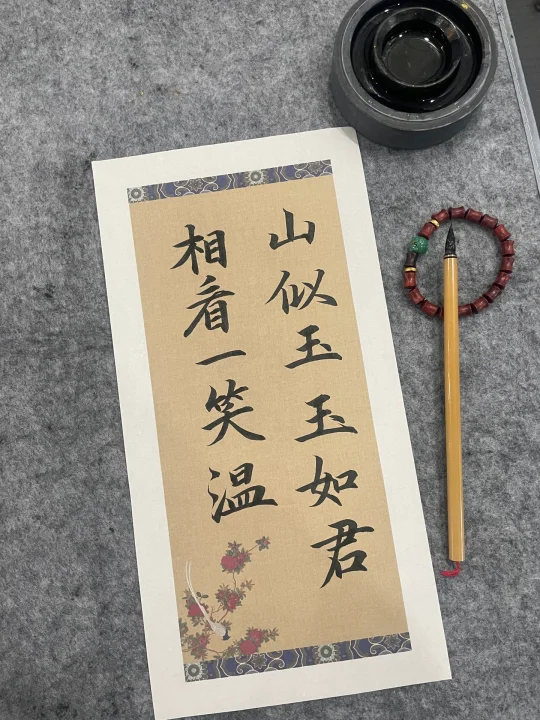 山似玉玉如君
相看一笑温